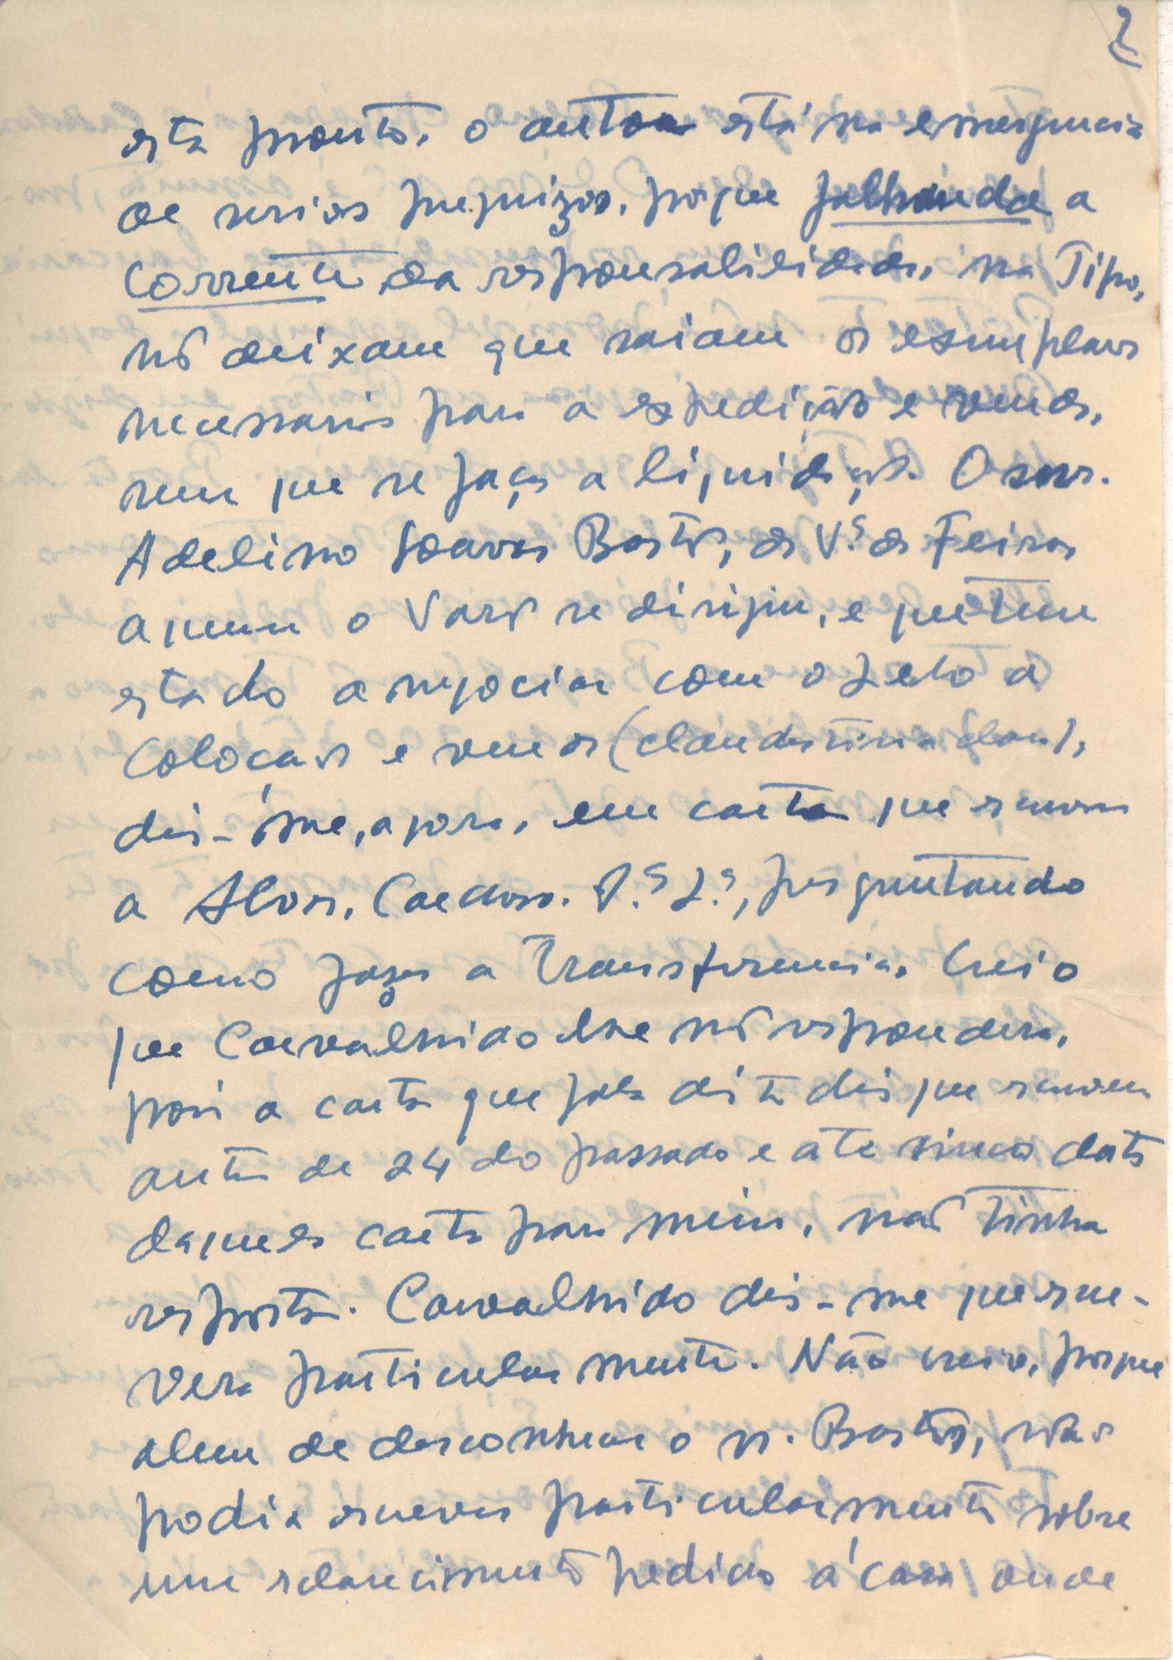 2
está pronto, o autor está na emergencia
de serios prejuizos, porque falhando a
corrente da responsabilidade, na Tipo,
nõ deixam que saiam os exemplares
necessarios para a expedição e venda,
sem que se faça a liquidação. O snr.
Adelino Soares Bastos, da Vª da Feira
a quem o Vaz se dirigiu, e que tem
estado a negociar com o Zelo a
colocação e venda (clandestina claro),
dis-me, agora, em carta que escreveu
a Alvar. Cardoso. Pª Lª, perguntando
como fazer a transferencia. Creio
que Carvalhido lhe nõ respondera,
pois a carta que fala disto dis que escreveu
antes de 24 do passado e até data
daquela carta para mim, não tinha
resposta. Carvalhido dis-me que escre-
vera particularmente. Não creio, porque
alem de desconhecer o sr. Bastos, não
podia escrever particularmente sobre
um esclarecimento pedido á casa onde